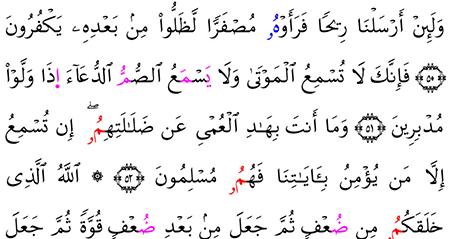 وَلَئِنْ أَرْسَلْنَا رِيحًا فَرَأَوْهُۥ مُصْفَرًّا لَّظَلُّوا۟ مِنۢ بَعْدِهِۦ يَكْفُرُونَ
۝٥٠ فَإِنَّكَ لَا تُسْمِعُ ٱلْمَوْتَىٰ وَلَا يَسْمَعُ ٱلصُّمُّ ٱلدُّعَآءَ اِذَا وَلَّوْا۟
مُدْبِرِينَ ۝٥١ وَمَآ أَنتَ بِهَـٰدِ ٱلْعُمْىِ عَن ضَلَـٰلَتِهِمُۥٓۖ إِن تُسْمِعُ
إِلَّا مَن يُؤْمِنُ بِـَٔايَـٰتِنَا فَهُمُۥ مُسْلِمُونَ ۝٥٢ ۞ ٱللَّهُ ٱلَّذِى
خَلَقَكُمُۥ مِن ضُعْفٍ ثُمَّ جَعَلَ مِنۢ بَعْدِ ضُعْفٍ قُوَّةً ثُمَّ جَعَلَ